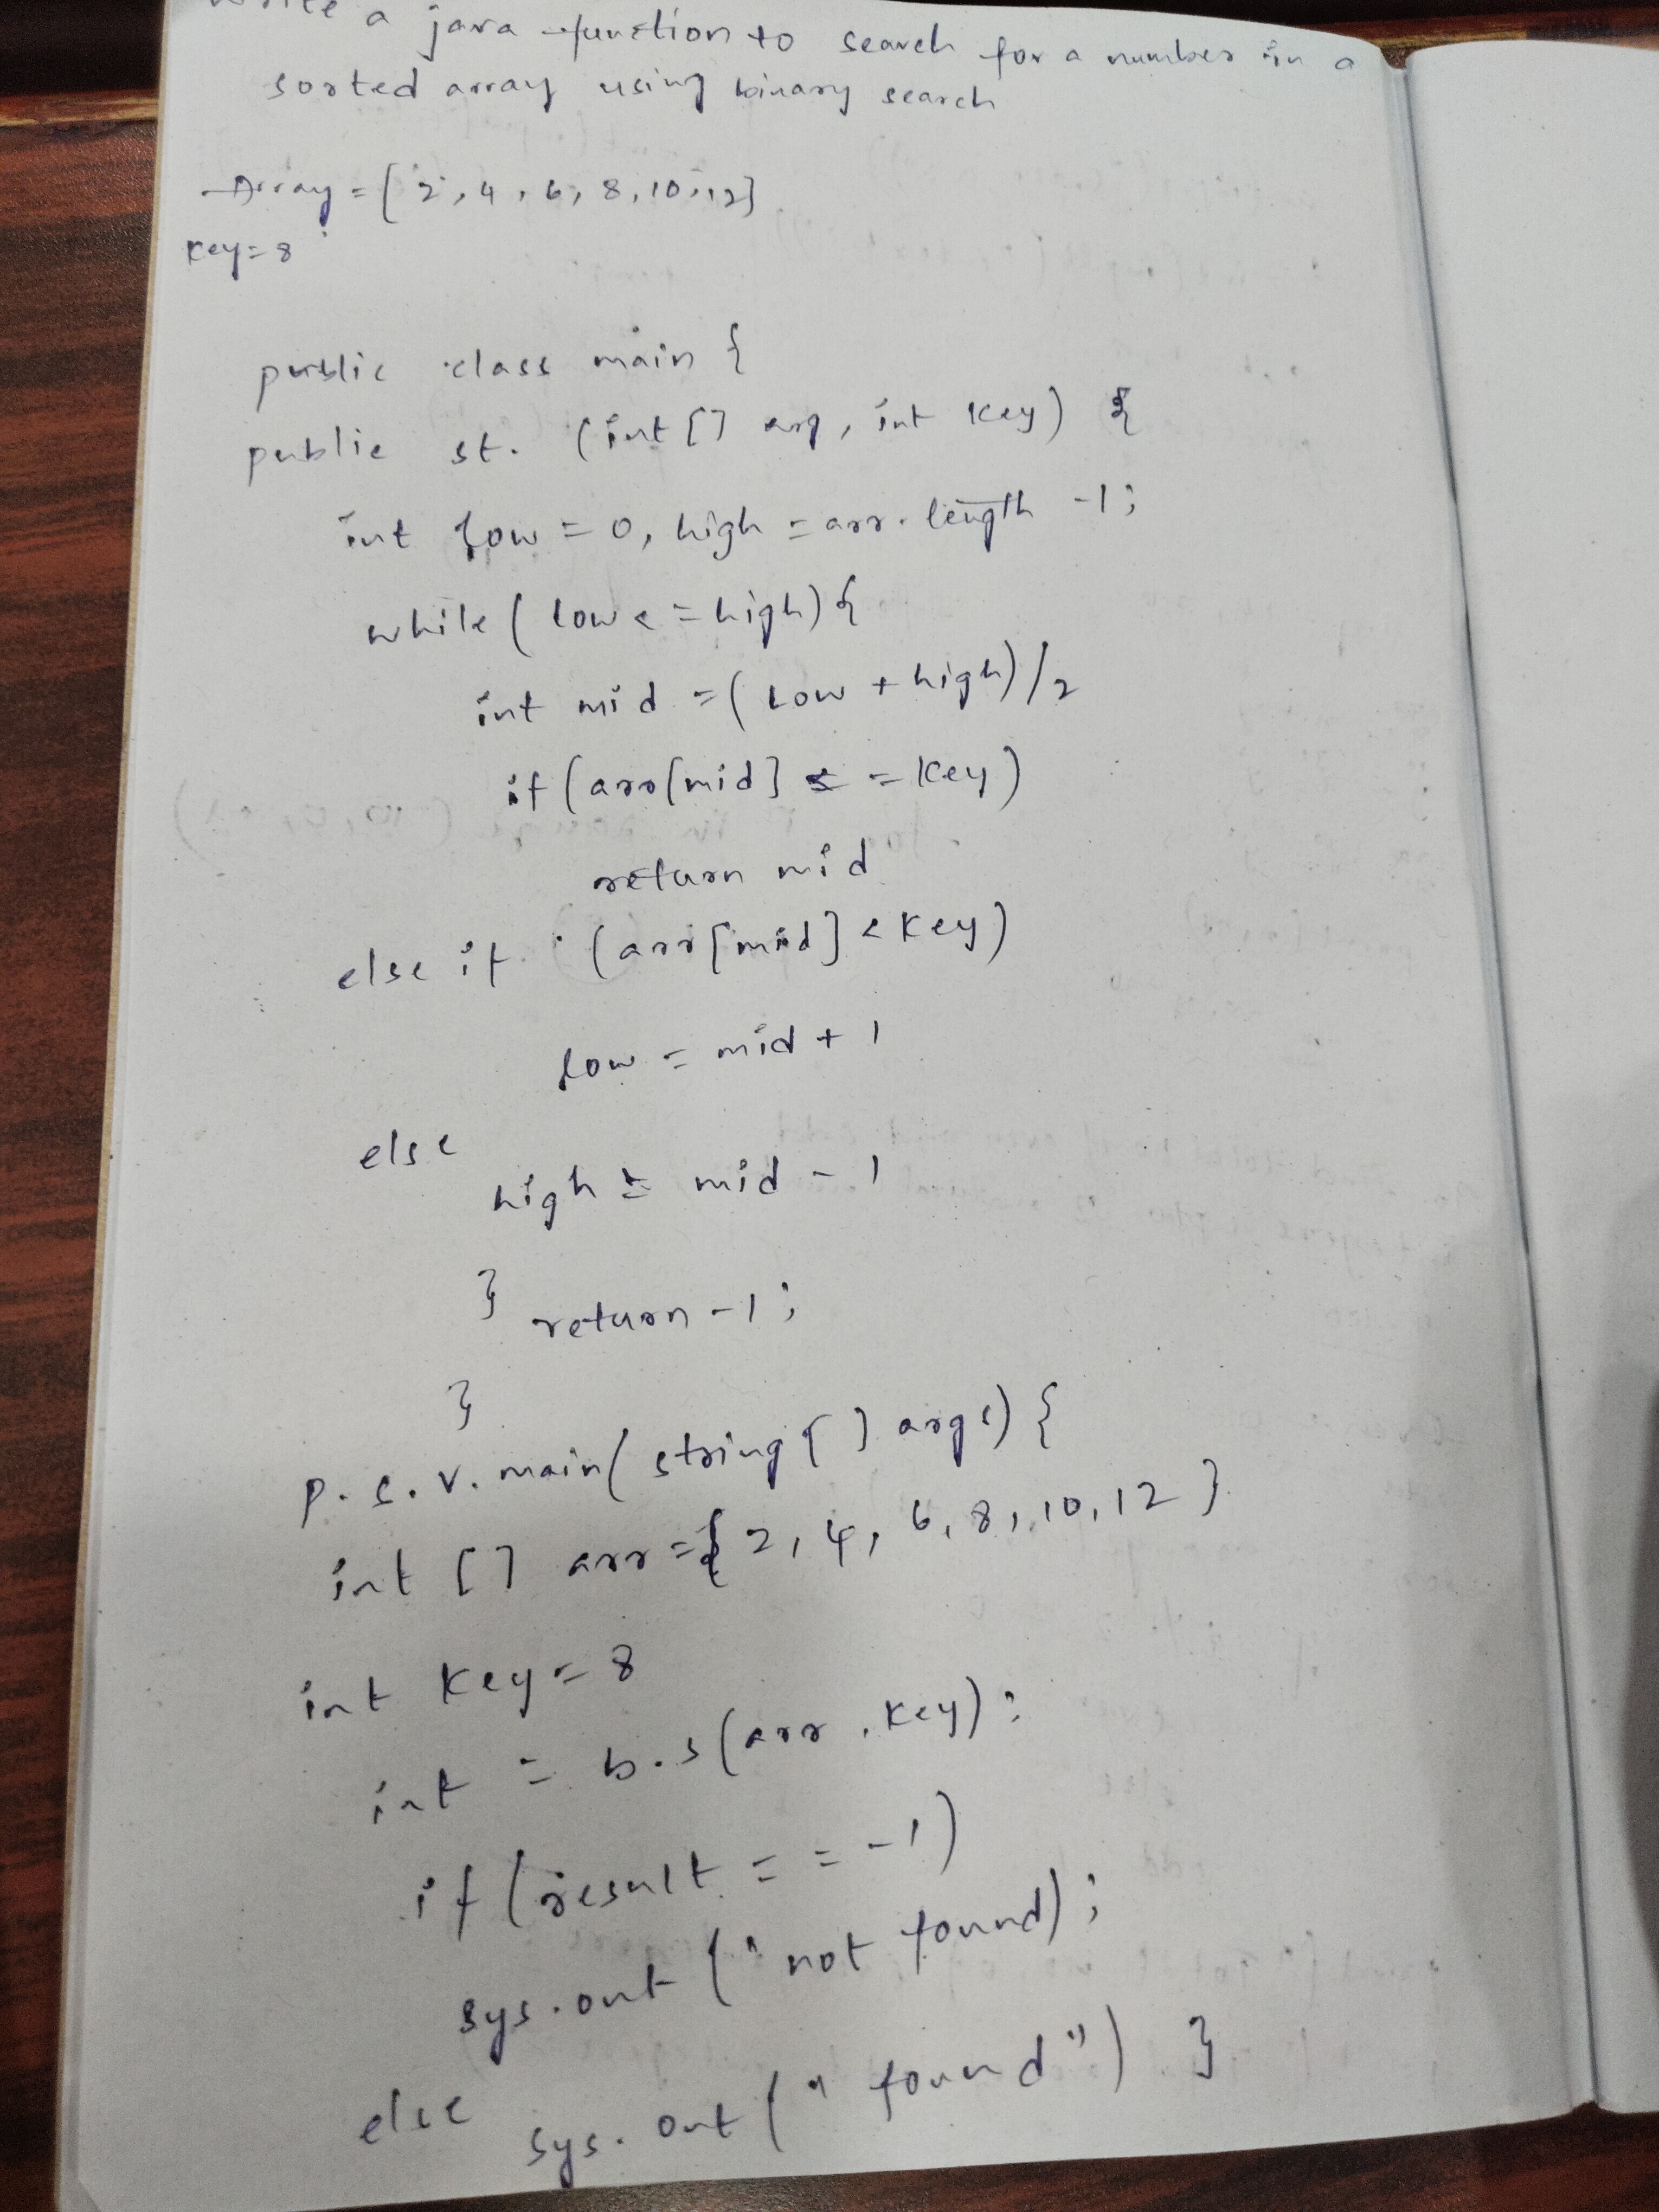 write a java function to search for a number in a
sorted array using binary search
Array = [2, 4, 6, 8, 10, 12]
key = 8
public class main {
public st. (int [] arr, int key) {
int low = 0, high = arr.length -1;
while (low < = high) {
int mid = (low + high) / 2
if (arr[mid] = = key)
return mid
else if (arr[mid] < key)
low = mid + 1
else
high = mid - 1
} return -1;
}
p. s. v. main( string [] args) {
int [] arr = { 2, 4, 6, 8, 10, 12 }
int key = 8
int = b.s (arr, key);
if (result = = -1)
sys.out ("not found);
else sys.out ("found") }